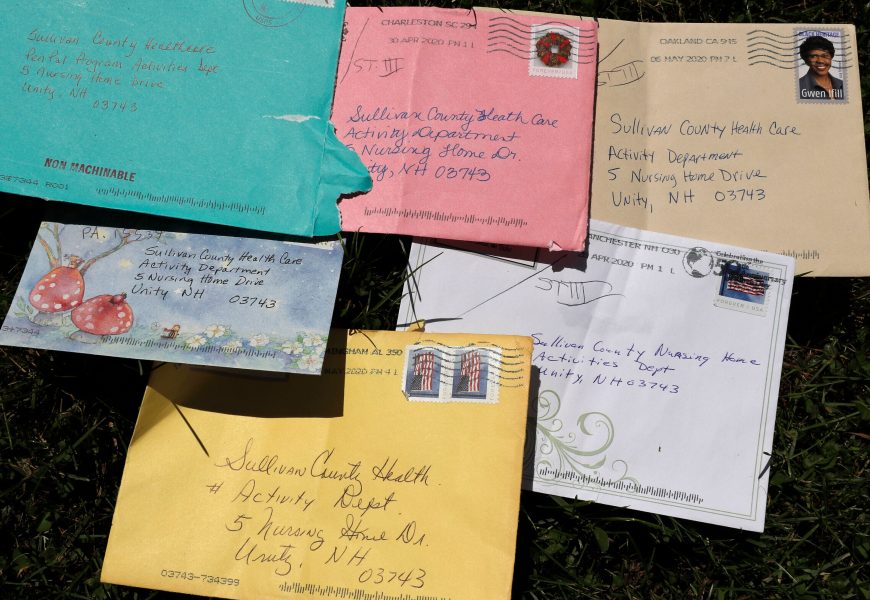 Sullivan County Healthcare
Penpal Program Activities Dept
5 Nursing Home Drive
Unity, NH
03743
NON MACHINABLE
CHARLESTON SC 294
30 APR 2020 PM 1 L
FOREVER
ST III
Sullivan County Heath Care
Activity Department
5 Nursing Home Dr.
Unity, NH 03743
OAKLAND CA 945
06 MAY 2020 PM 7 L
BLACK HERITAGE
Gwen Ifill
ST III
Sullivan County Health Care
Activity Department
5 Nursing Home Drive
Unity, NH 03743
PA.
Sullivan County Health Care
Activity Department
5 Nursing Home Drive
Unity NH 03743
ANCHESTER NH 030
APR 2020 PM 1 L
Celebrating the
Anniversary
FOREVER / USA
ST III
Sullivan County Nursing Home
Activities Dept
Unity, NH 03743
INGHAM AL 350
MAY 2020 PM 4 L
Sullivan County Health
# Activity Dept.
5 Nursing Home Dr.
Unity, NH
03743
03743-734399